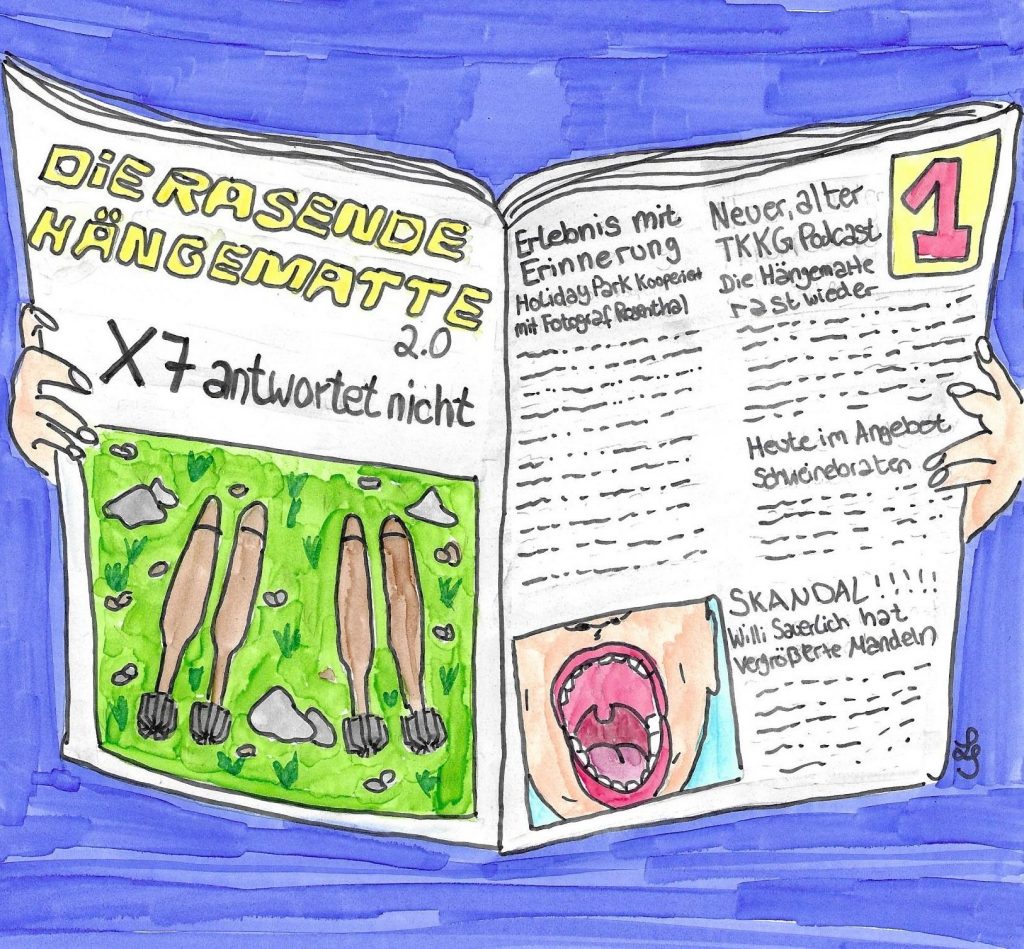 DiE RASENDE
HÄNGEMATTE
2.0
X7 antwortet nicht
Erlebnis mit
Erinnerung
Holiday Park Kooperiert
mit Fotograf Rosenthal
Neuer, alter
TKKG Podcast
Die Hängematte
rast wieder
1
Heute im Angebot
Schweinebraten
SKANDAL!!!!!!
Willi Sauerlich hat
vergrößerte Mandeln